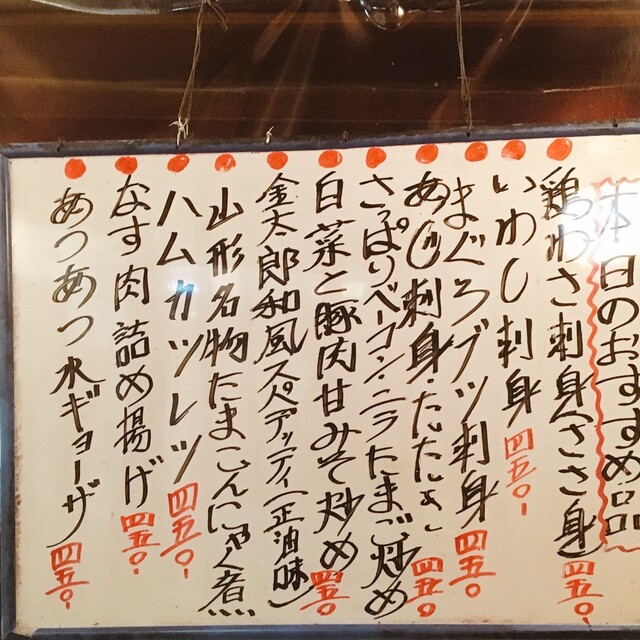 本日のおすすめ品
鶏わさ刺身(ささ身) 四五〇-
いわし刺身 四五〇-
まぐろブツ刺身 四五〇-
あじ刺身・たたき 四五〇-
さっぱりベーコン・ニラたまご炒め
白菜と豚肉甘みそ炒め 四五〇
金太郎和風スパゲッティ(正油味)
山形名物たまこんにゃく煮
ハムカツレツ 四五〇-
なす肉詰め揚げ 四五〇-
あつあつ水ギョーザ 四五〇-